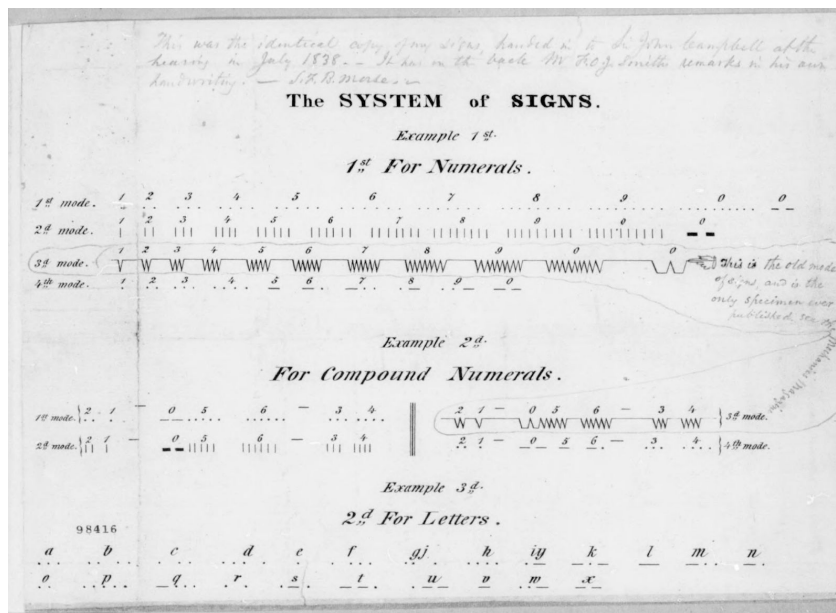 This was the identical copy of my signs, handed in to Sir John Campbell at the
hearing in July 1838. — It has on the back Mr F.O.J. Smith's remarks in his own
handwriting. — S.F.B. Morse. —
The SYSTEM of SIGNS.
Example 1st.
1st For Numerals.
1st mode. 1 2 3 4 5 6 7 8 9 0 0
2d mode. 1 2 3 4 5 6 7 8 9 0 0
3d mode. 1 2 3 4 5 6 7 8 9 0 0 This is the old mode
4th mode. 1 2 3 4 5 6 7 8 9 0 of signs, and is the
only specimen ever
published see
Mechanics Magazine
Example 2d.
For Compound Numerals.
1st mode. 2 1 — 0 5 . 6 — 3 4 2 1 — 0 5 6 — 3 4 3d mode.
2d mode. 2 1 — 0 5 6 — 3 4 2 1 — 0 5 6 — 3 4 4th mode.
Example 3d.
2d For Letters.
98416
a b c d e f gj h iy k l m n
o p q r s t u v w x